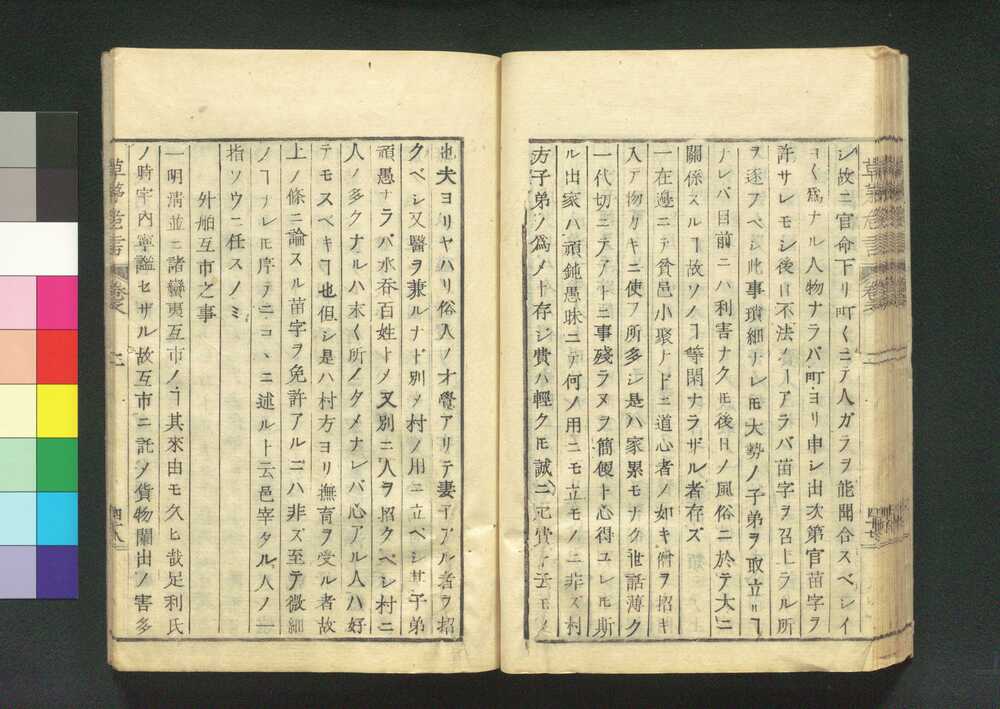 シ故ニ官命下リ町〱ニテ人ガラヲ能聞合スベシイ
ヨ〱爲ナル人物ナラバ町ヨリ申シ出次第官苗字ヲ
許サレモシ後日不法ノヿアラバ苗字ヲ召上ラル所
ヲ遂フベシ此事瑣細ナレ𪜈大勢ノ子弟ヲ取立ルヿ
ナレバ目前ニハ利害ナク𪜈後日ノ風俗ニ於テ大ニ
關係スルヿ故ソノヿ等閑ナラザル者存ズ
一在邊ニテ貧邑小聚ナドニ道心者ノ如キ僧ヲ招キ
入ア物カキニ使フ所多シ是ハ家累モナク世話薄ク
一代切ニテアトニ事殘ラヌヲ簡便ト心得ユレ𪜈斯
ル出家ハ頑鈍愚昧ニテ何ノ用ニモ立モノニ非ズ村
方子弟ノ爲メト存シ費ハ輕ク𪜈誠ニ冗費ト云モノ
也夫ヨリヤハリ俗人ノ才覺アリテ妻子アル者ヲ招
クベシ又醫ヲ兼ルナド別メ村ノ用ニ立ベシ其子弟
頑愚ナラバ水呑百姓トメ又別ニ人ヲ招クベシ村ニ
人ノ多クナルハ末〱所ノタメナレバ心アル人ハ好
テモスベキヿ也但シ是ハ村方ヨリ撫育ヲ受ル者故
上ノ條ニ論スル苗字ヲ免許アルニハ非ズ至テ微細
ノヿナレ𪜈序テニコヽニ述ルト云邑宰タル人ノ一
指ソウニ任スノミ
外舶互市之事
一明淸並ニ諸蠻夷互市ノヿ其來由モ久ヒ哉足利氏
ノ時宇内寧謐セザル故互市ニ託メ貨物闌出ノ害多
草茅危言 卷之 上 四十八